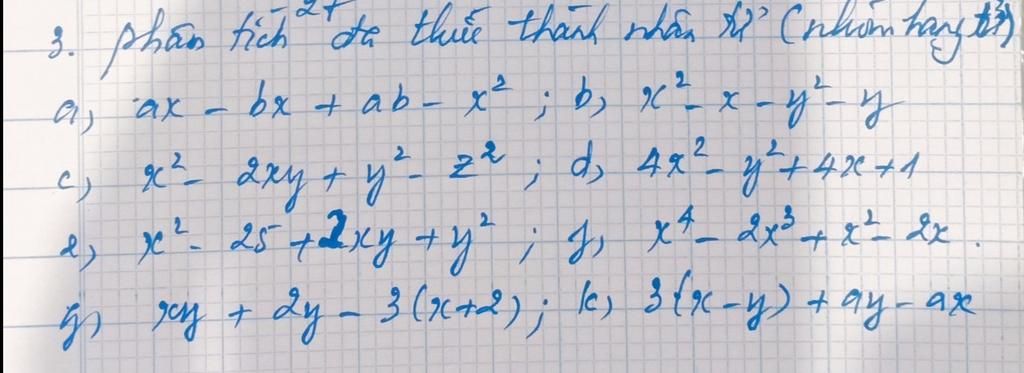 3. phân tích đa thức thành nhân tử (nhóm hạng tử)
a, ax - bx + ab - x² ; b, x² - x - y² - y
c, x² - 2xy + y² - z² ; d, 4x² - y² + 4x + 1
e, x² - 25 + 2xy + y² ; f, x⁴ - 2x³ + x² - 2x .
g, xy + 2y - 3(x+2) ; k, 3(x-y) + ay - ax